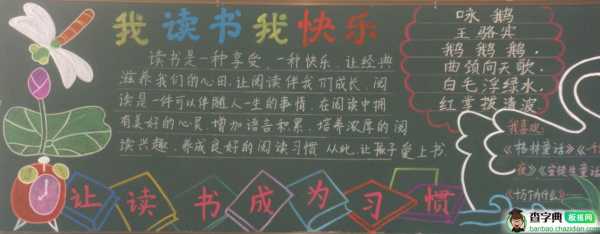 我读书我快乐
读书是一种享受、一种快乐,让经典
滋养我们的心田,让阅读伴我们成长,阅
读是一件可以伴随人一生的事情,在阅读中拥
有美好的心灵,增加语言积累,培养浓厚的阅
读兴趣,养成良好的阅读习惯,从此,让孩子爱上书.
咏鹅
王骆宾
鹅 鹅 鹅,
曲颈向天歌.
白毛浮绿水,
红掌拨清波
我喜欢:
《格林童话》《一
夜》《安徒生童话
《十万个为什么》
让读书成为习惯
查字典 板报网
banbao.chazidian.com